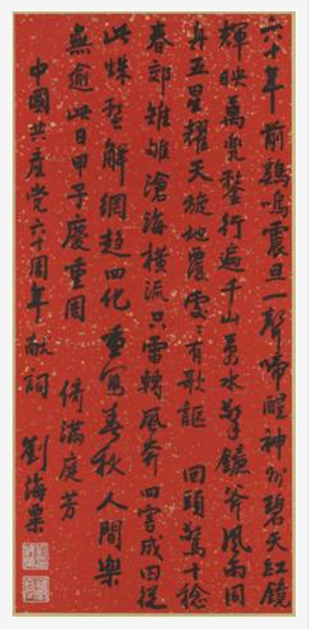 六十年前鷄鳴震旦一聲啼醒神州碧天紅鏡
輝映萬兜鍪行遍千山萬水擎鐮斧風雨同
舟五星耀天旋地覆處〻有歌謳 回頭驚十稔
春郊雉雊滄海橫流只雷轉風奔四害成囚從
此蛛解網趨四化重寫春秋人間樂
無逾此日甲子慶重周 倚滿庭芳
中國共產党六十周年献詞 劉海粟